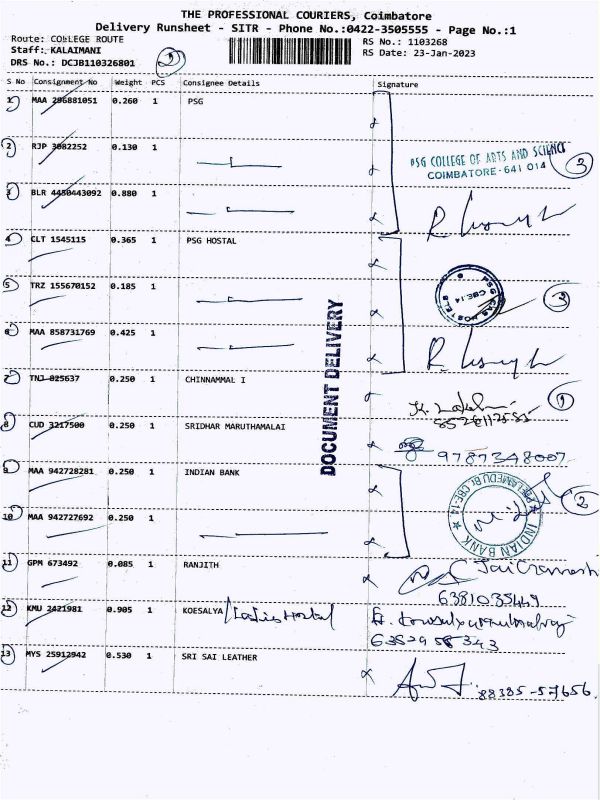 THE PROFESSIONAL COURIERS, Coimbatore
Delivery Runsheet - SITR - Phone No.:0422-3505555 - Page No.:1
Route: COLLEGE ROUTE
Staff: KALAIMANI
DRS No.: DCJB110326801
2
RS No.: 1103268
RS Date: 23-Jan-2023
S No Consignment No Weight PCS Consignee Details Signature
1 MAA 296881051 0.260 1 PSG
2 RJP 3082252 0.130 1
PSG COLLEGE OF ARTS AND SCIENCE
COIMBATORE-641 014
3
3 BLR 4450443092 0.880 1
4 CLT 1545115 0.365 1 PSG HOSTAL
5 TRZ 155670152 0.185 1
PSG CAS HOSTEL
CBE-14
3
6 MAA 858731769 0.425 1
DOCUMENT DELIVERY
7 TNJ 025637 0.250 1 CHINNAMMAL I
1
8 CUD 3217500 0.250 1 SRIDHAR MARUTHAMALAI
9787348007
9 MAA 942728281 0.250 1 INDIAN BANK
PEELAMEDU Br. CBE-14
INDIAN BANK
2
10 MAA 942727692 0.250 1
11 GPM 673492 0.085 1 RANJITH
6381035449
12 KMU 2421981 0.905 1 KOESALYA / Ladies Hostel
13 MYS 25912942 0.530 1 SRI SAI LEATHER
88385-57656